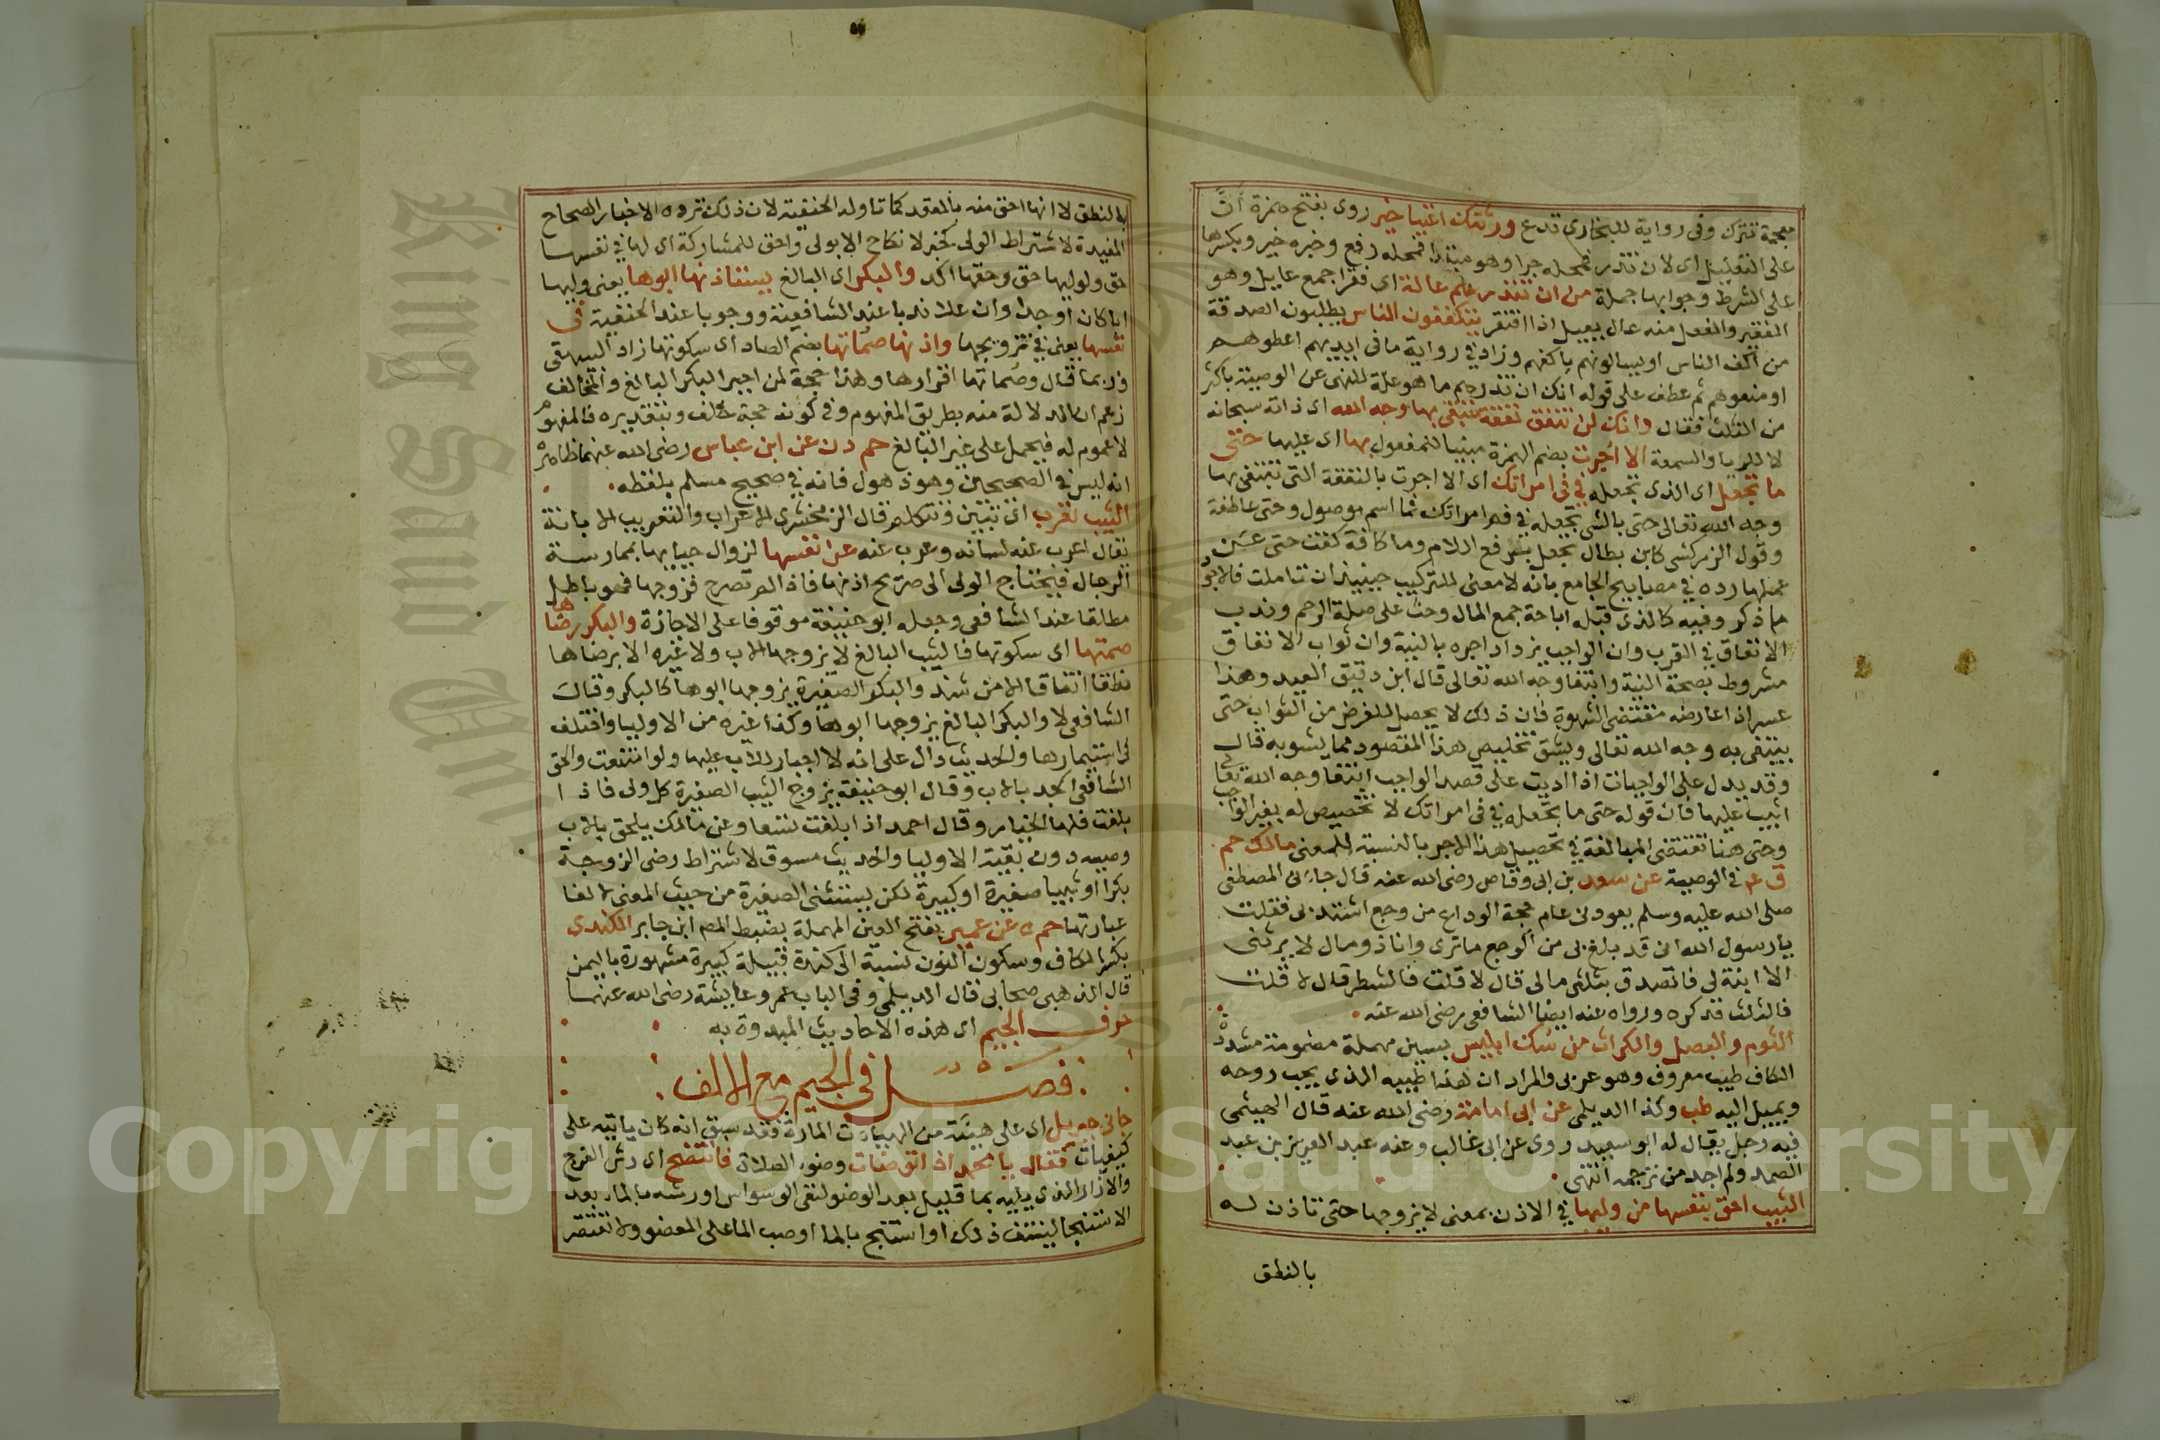 معجمة تترك وفى رواية للبخارى تدع ورثتك اغنيا خير روى بفتح همزة ان
على التعليل اى لان تذر فمحله جرا وهو مبتدا فمحله رفع وخبره خير وبكسرها
على الشرط وجوابها جملة من ان تتذرهم عالة اى فقرا جمع عايل وهو
الفقير والفعل منه عال يعيل اذا افتقر يتكففون الناس يطلبون الصدقة
من اكف الناس او يسالونهم باكفهم وزاد في رواية ما فى ايديهم اعطوهم
او منعوهم ثم عطف على قوله انك ان تذرهم ما هو علة للنهى عن الوصية باكثر
من الثلث فقال وانك لن تنفق نفقة تبتغى بها وجه الله اى ذاته سبحانه
لا للريا والسمعة الا اجرت بضم الهمزة مبنيا للمفعول بها اى عليها حتى
ما تجعل اى الذى تجعله في فى امراتك اى الا اجرت بالنفقة التى تبتغى بها
وجه الله تعالى حتى بالشى تجعله في فم امراتك فما اسم موصول وحتى عاطفة
وقول الزركشى كابن بطال تجعل برفع اللام وما كافة كفت حتى عن
عملها رده في مصابيح الجامع بانه لا معنى للتركيب حينيذ ان تاملت فالاجو
ما ذكر وفيه كالذى قبله اباحة جمع المال وحث على صلة الرحم وندب
الانفاق في القرب وان الواجب يزداد اجره بالنية وان ثواب الانفاق
مشروط بصحة النية وابتغا وجه الله تعالى قال ابن دقيق العيد وهذا
عسر اذا عارضه مقتضى الشهوة فان ذلك لا يحصل للغرض من الثواب حتى
يبتغى به وجه الله تعالى ويشق تخليص هذا المقصود مما يشوبه قال
وقد يدل على الواجبات اذا اديت على قصد الواجب ابتغا وجه الله تعا
اثيب عليها فان قوله حتى ما تجعله في فى امراتك لا تخصيص له بغير الواجب
وحتى هنا تقتضى المبالغة في تحصيل هذا الاجر بالنسبة للمعنى مالك حم
ق عه فى الوصية عن سعد بن ابى وقاص رضى الله عنه قال جاءنى المصطفى
صلى الله عليه وسلم يعودنى عام حجة الوداع من وجع اشتد بى فقلت
يا رسول الله انى قد بلغ بى من الوجع ما ترى وانا ذو مال لا يرثنى
الا ابنة لى فاتصدق بثلثى مالى قال لا قلت فالشطر قال لا قلت
فالثلث فذكره ورواه عنه ايضا الشافعى رضى الله عنه
الثوم والبصل والكراث من سك ابليس بسين مهملة مضمومة مشددة
الكاف طيب معروف وهو عربى والمراد ان هذا طيبه الذى يحب روحه
ويميل اليه طب وكذا الديلمى عن ابى امامة رضى الله عنه قال الهيثمى
فيه رجل يقال له ابو سعيد روى عن ابى غالب وعنه عبد العزيز بن عبد
الصمد ولم اجد من ترجمه انتهى
الثيب احق بنفسها من وليها في الاذن بمعنى لا يزوجها حتى تاذن له
بالنطق
بالنطق لا انها احق منه بالعقد كما تاوله الحنفية لان ذلك ترده الاخبار الصحاح
المفيدة لاشتراط الولى كخبر لا نكاح الا بولى واحق للمشاركة اى لها في نفسها
حق ولوليها حق وحقها اكد والبكر اى البالغ يستاذنها ابوها يعنى وليها
ابا كان او جدا وان علا ندبا عند الشافعية ووجوبا عند الحنفية في
نفسها يعنى في تزويجها واذنها صماتها بضم الصاد اى سكوتها زاد البيهقى
وربما قال وصماتها اقرارها وهذا حجة لمن اجبر البكر البالغ والمخالف
زعم ان الدلالة منه بطريق المفهوم وفى كونه حجة خلف وبتقديره فالمفهوم
لا عموم له فيحمل على غير البالغ حم دن عن ابن عباس رضى الله عنهما ظاهره
انه ليس في الصحيحين وهو ذهول فانه في صحيح مسلم بلفظه
الثيب تعرب اى تبين وتتكلم قال الزمخشرى الاعراب والتعريب الابانة
يقال اعرب عنه لسانه وعرب عنه عن نفسها لزوال حيايها بممارسة
الرجال فيحتاج الولى الى صريح اذنها فاذا لم تصرح فزوجها فهو باطل
مطلقا عند الشافعى وجعله ابو حنيفة موقوفا على الاجازة والبكر رضاها
صمتها اى سكوتها فالثيب البالغ لا يزوجها الاب ولا غيره الا برضاها
نطقا اتفاقا الا من شذ والبكر الصغيرة يزوجها ابوها كالبكر وقال
الشافعى لا والبكر البالغ يزوجها ابوها وكذا غيره من الاوليا واختلف
في استيمارها والحديث دال على انه لا اجبار للاب عليها ولو امتنعت والحق
الشافعى الجد بالاب وقال ابو حنيفة يزوج الثيب الصغيرة كل ولى فاذا
بلغت فلها الخيار وقال احمد اذا بلغت تسعا وعن مالك يلحق بالاب
وصيه دون بقية الاوليا والحديث مسوق لاشتراط رضى الزوجة
بكرا او ثيبا صغيرة او كبيرة لكن يستثنى الصغيرة من حيث المعنى لالغا
عبارتها حم ه عن عميرة بفتح العين المهملة بضبط المص ابن جابر الكندى
بكسر الكاف وسكون النون نسبة الى كندة قبيلة كبيرة مشهورة باليمن
قال الذهبى صحابى قال الديلمى وفى الباب عمر وعايشة رضى الله عنهما
حرف الجيم اى هذه الاحاديث المبدوة به
فصل في الجيم مع الالف
جانى جبريل اى على هيئة من الهيات المارة فقد سبق انه كان ياتيه على
كيفيات فقال يا محمد اذا توضات وضوء الصلاة فانتضح اى رش الفرج
والازار الذى يليه بما قليل بعد الوضو لنفى الوسواس او رشه بالما بعد
الاستنجا لينتف ذلك او استنج بالما او صب الما على العضو ولا تقتصر
King Saud University
Copyright © King Saud University